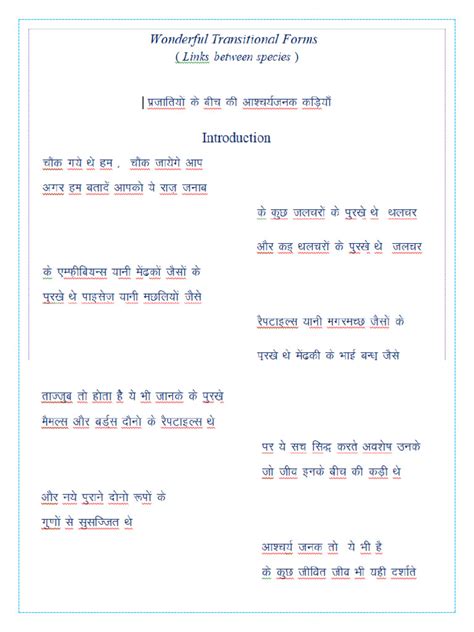 Wonderful Transitional Forms
( Links between species )
प्रजातियो के बीच की आश्चर्यजनक कड़ियाँ
Introduction
चौंक गये थे हम , चौक जायेगे आप
अगर हम बतादें आपको ये राज़ जनाब
के कुछ जलचरों के पुरखे थे थलचर
और कह थलचरों के पुरखे थे जलचर
के एम्फीबियन्स यानी मेंढकों जैसों के
पुरखे थे पाइसेज़ यानी मछलियों जैसे
रैपटाइल्स यानी मगरमच्छ जैसों के
पुरखे थे मेंढकी के भाई बन्धु जैसे
ताज्जुब तो होता है ये भी जानके के पुरखे
मैमल्स और बर्डस दौनो के रैपटाइल्स थे
पर ये सच सिद्ध करते अवशेष उनके
जो जीव इनके बीच की कड़ी थे
और नये पुराने दोनो रूपों के
गुणों से सुसज्जित थे
आश्चर्य जनक तो ये भी है
के कुछ जीवित जीव भी यही दर्शाते